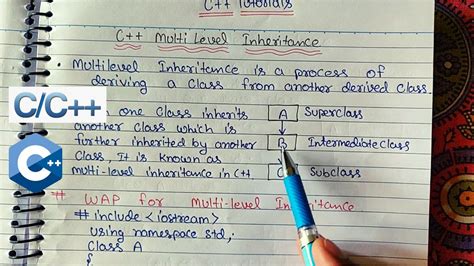 C++ Tutorials
C++ Multi Level Inheritance
• Multilevel Inheritance is a process of
deriving a class from another derived class.
C/C++
one class inherits
A Superclass
another class which is
further inherited by another
B Intermediate class
class, It is known as
multi-level inheritance in C++.
C Subclass
C++
# WAP for Multi-level Inheritance.
# include <iostream>
using namespace std;
class A
{